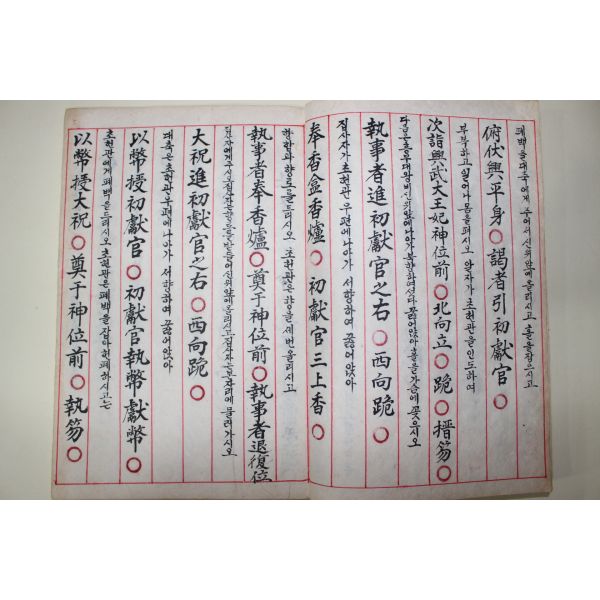 폐백을 대축에게 주어서 신위앞에 올리시고 홀을 잡으시고
俯伏興平身○謁者引初獻官○
부복하고 일어나 몸을 펴시오 알자가 초헌관을 인도하여
次詣興武大王妃神位前○北向立○跪○搢笏○
다음은 흥무대왕비 신위앞에 나아가 북향하여 섰다 꿇어앉아 홀을 가슴에 꽂으시오
執事者進初獻官之右○西向跪○
집사자가 초헌관 우편에 나아가 서향하여 꿇어앉아
奉香盒香爐○初獻官三上香○
향합과 향로를 드리시오 초헌관은 향을 세번 올리시고
執事者奉香爐○奠于神位前○執事者退復位
집사자에게 주시 집사자는 향로를 받들어 신위앞에 올리시고 집사자는 제자리에 물러가시오
大祝進初獻官之右○西向跪○
대축은 초헌관 우편에 나아가 서향하여 꿇어앉아
以幣授初獻官○初獻官執幣獻幣○
초헌관에게 폐백을 드리시오 초헌관은 폐백을 잡아 헌폐하시고는
以幣授大祝○奠于神位前○執笏○